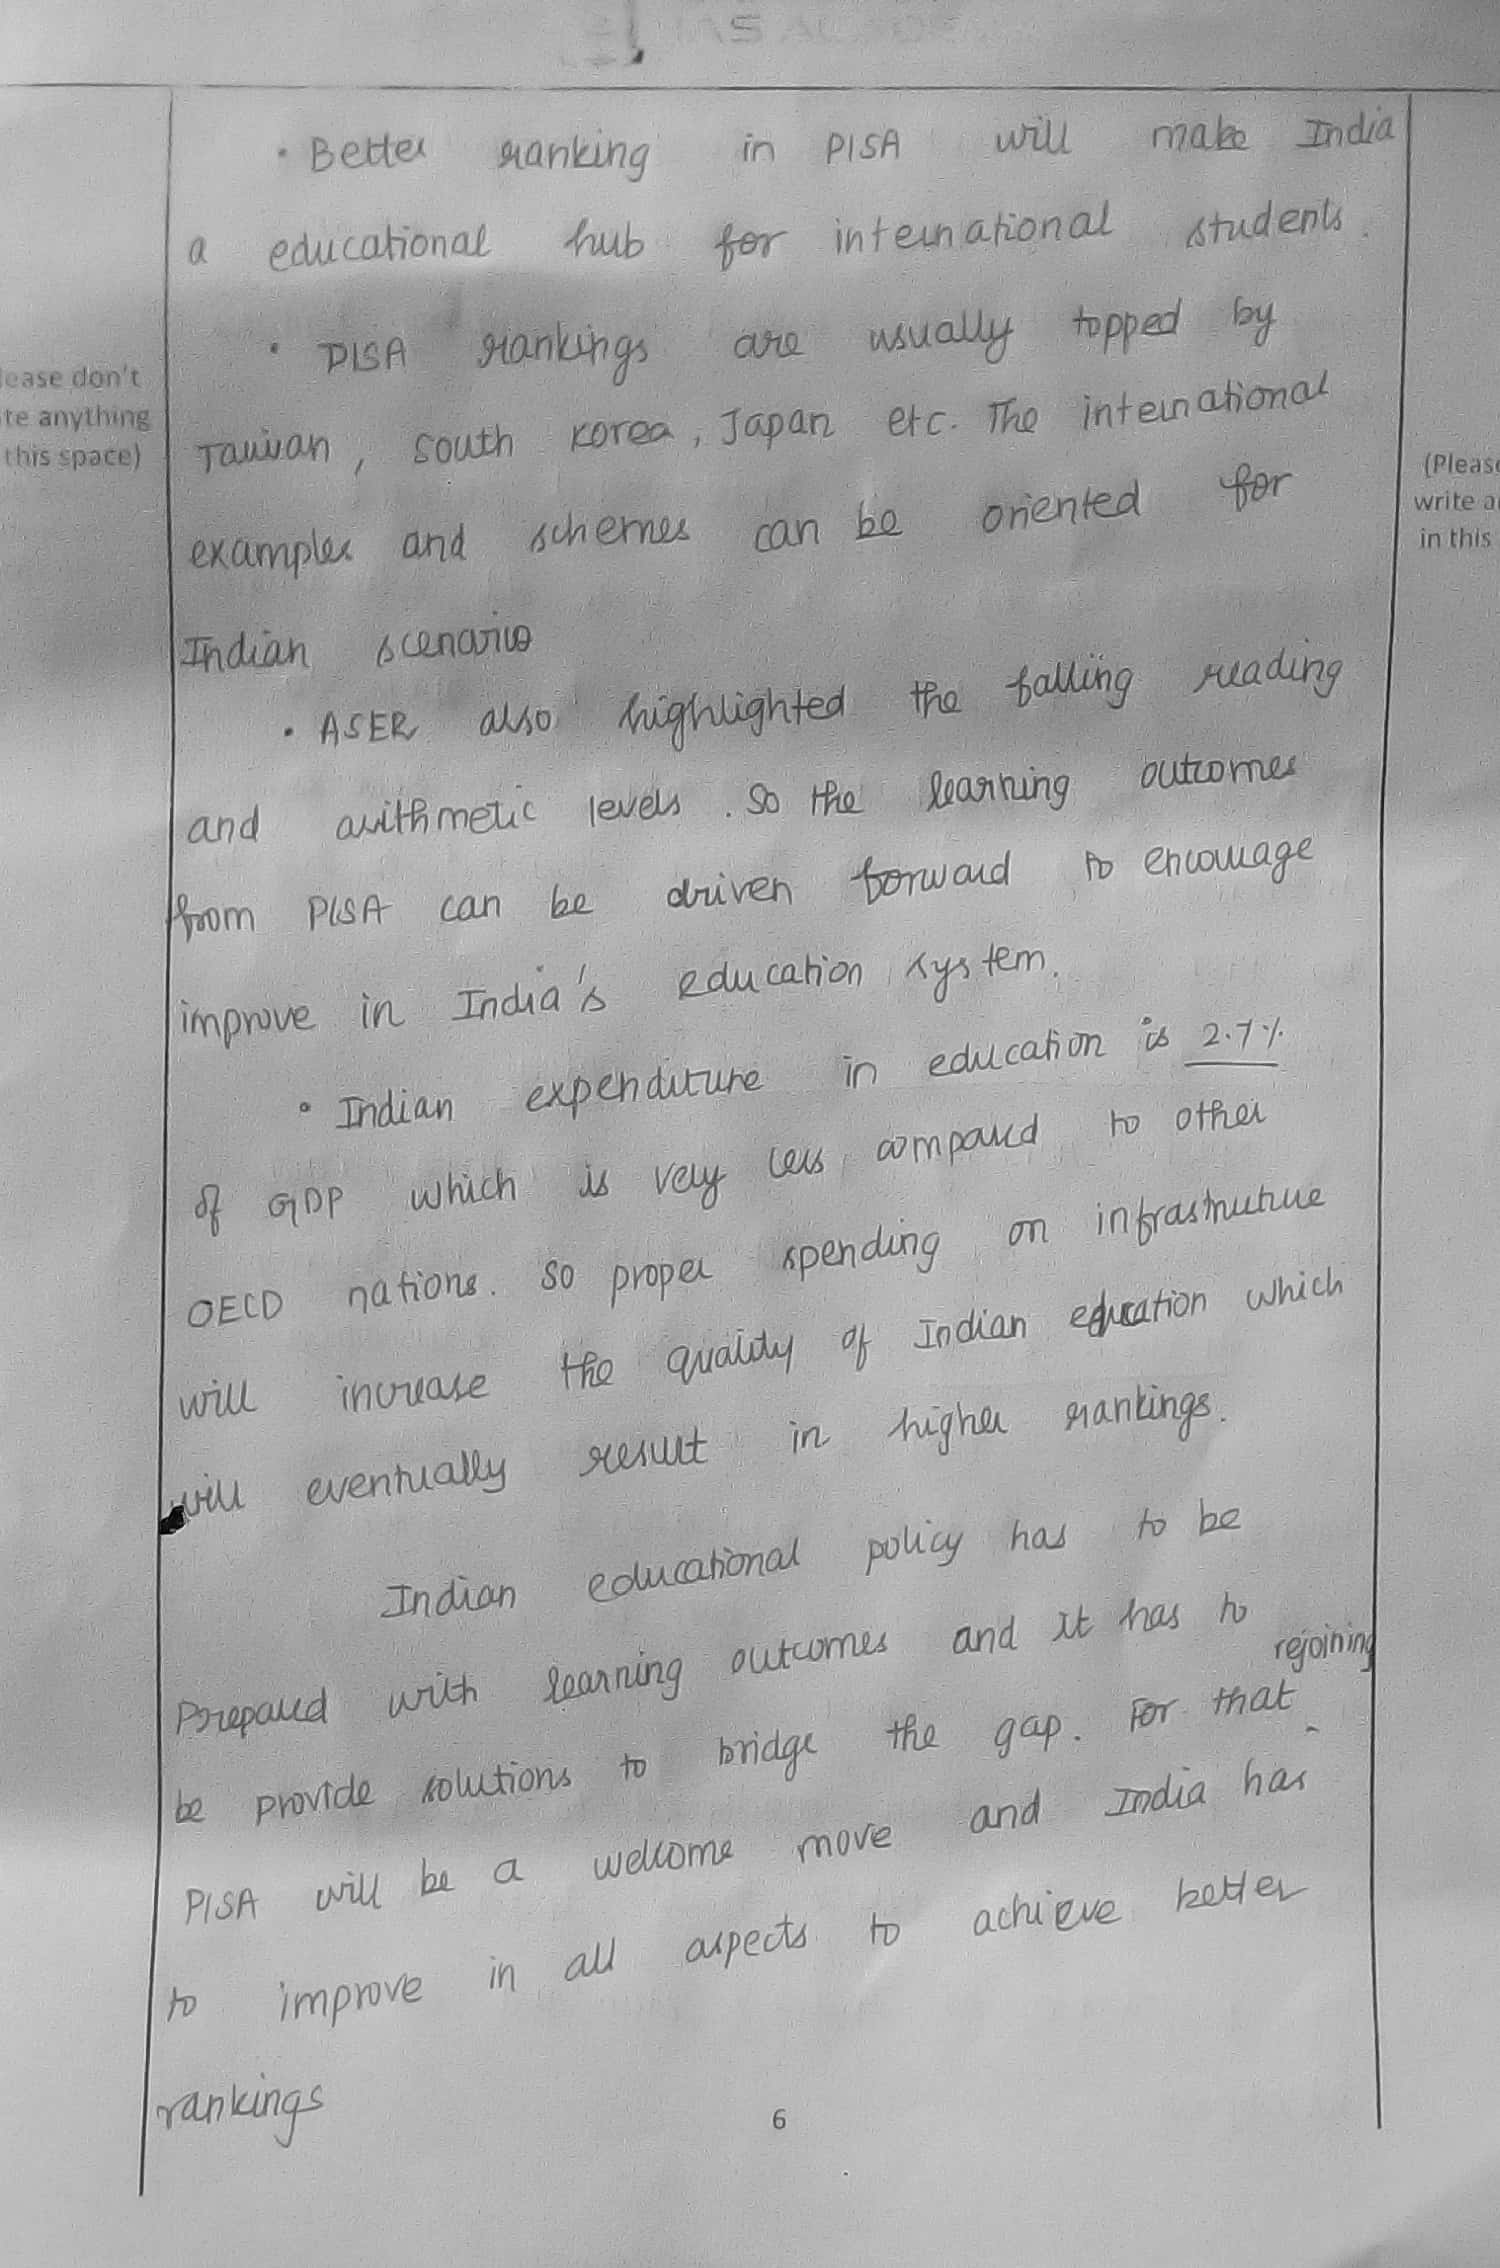 IAS
• Better ranking in PISA will make India
a educational hub for international students.
• PISA rankings are usually topped by
lease don't
te anything
this space)
Taiwan, South Korea, Japan etc. The international
(Please
write a
in this
examples and schemes can be oriented for
Indian scenario
• ASER also highlighted the falling reading
and arithmetic levels. So the learning outcomes
from PISA can be driven forward to encourage
improve in India's education system.
• Indian expenditure in education is 2.7%
of GDP which is very less compared to other
OECD nations. So proper spending on infrastruture
will increase the quality of Indian education which
will eventually result in higher rankings.
Indian educational policy has to be
Prepared with learning outcomes and it has to
be provide solutions to bridge the gap. For that rejoining
PISA will be a welcome move and India has
to improve in all aspects to achieve better
rankings
6